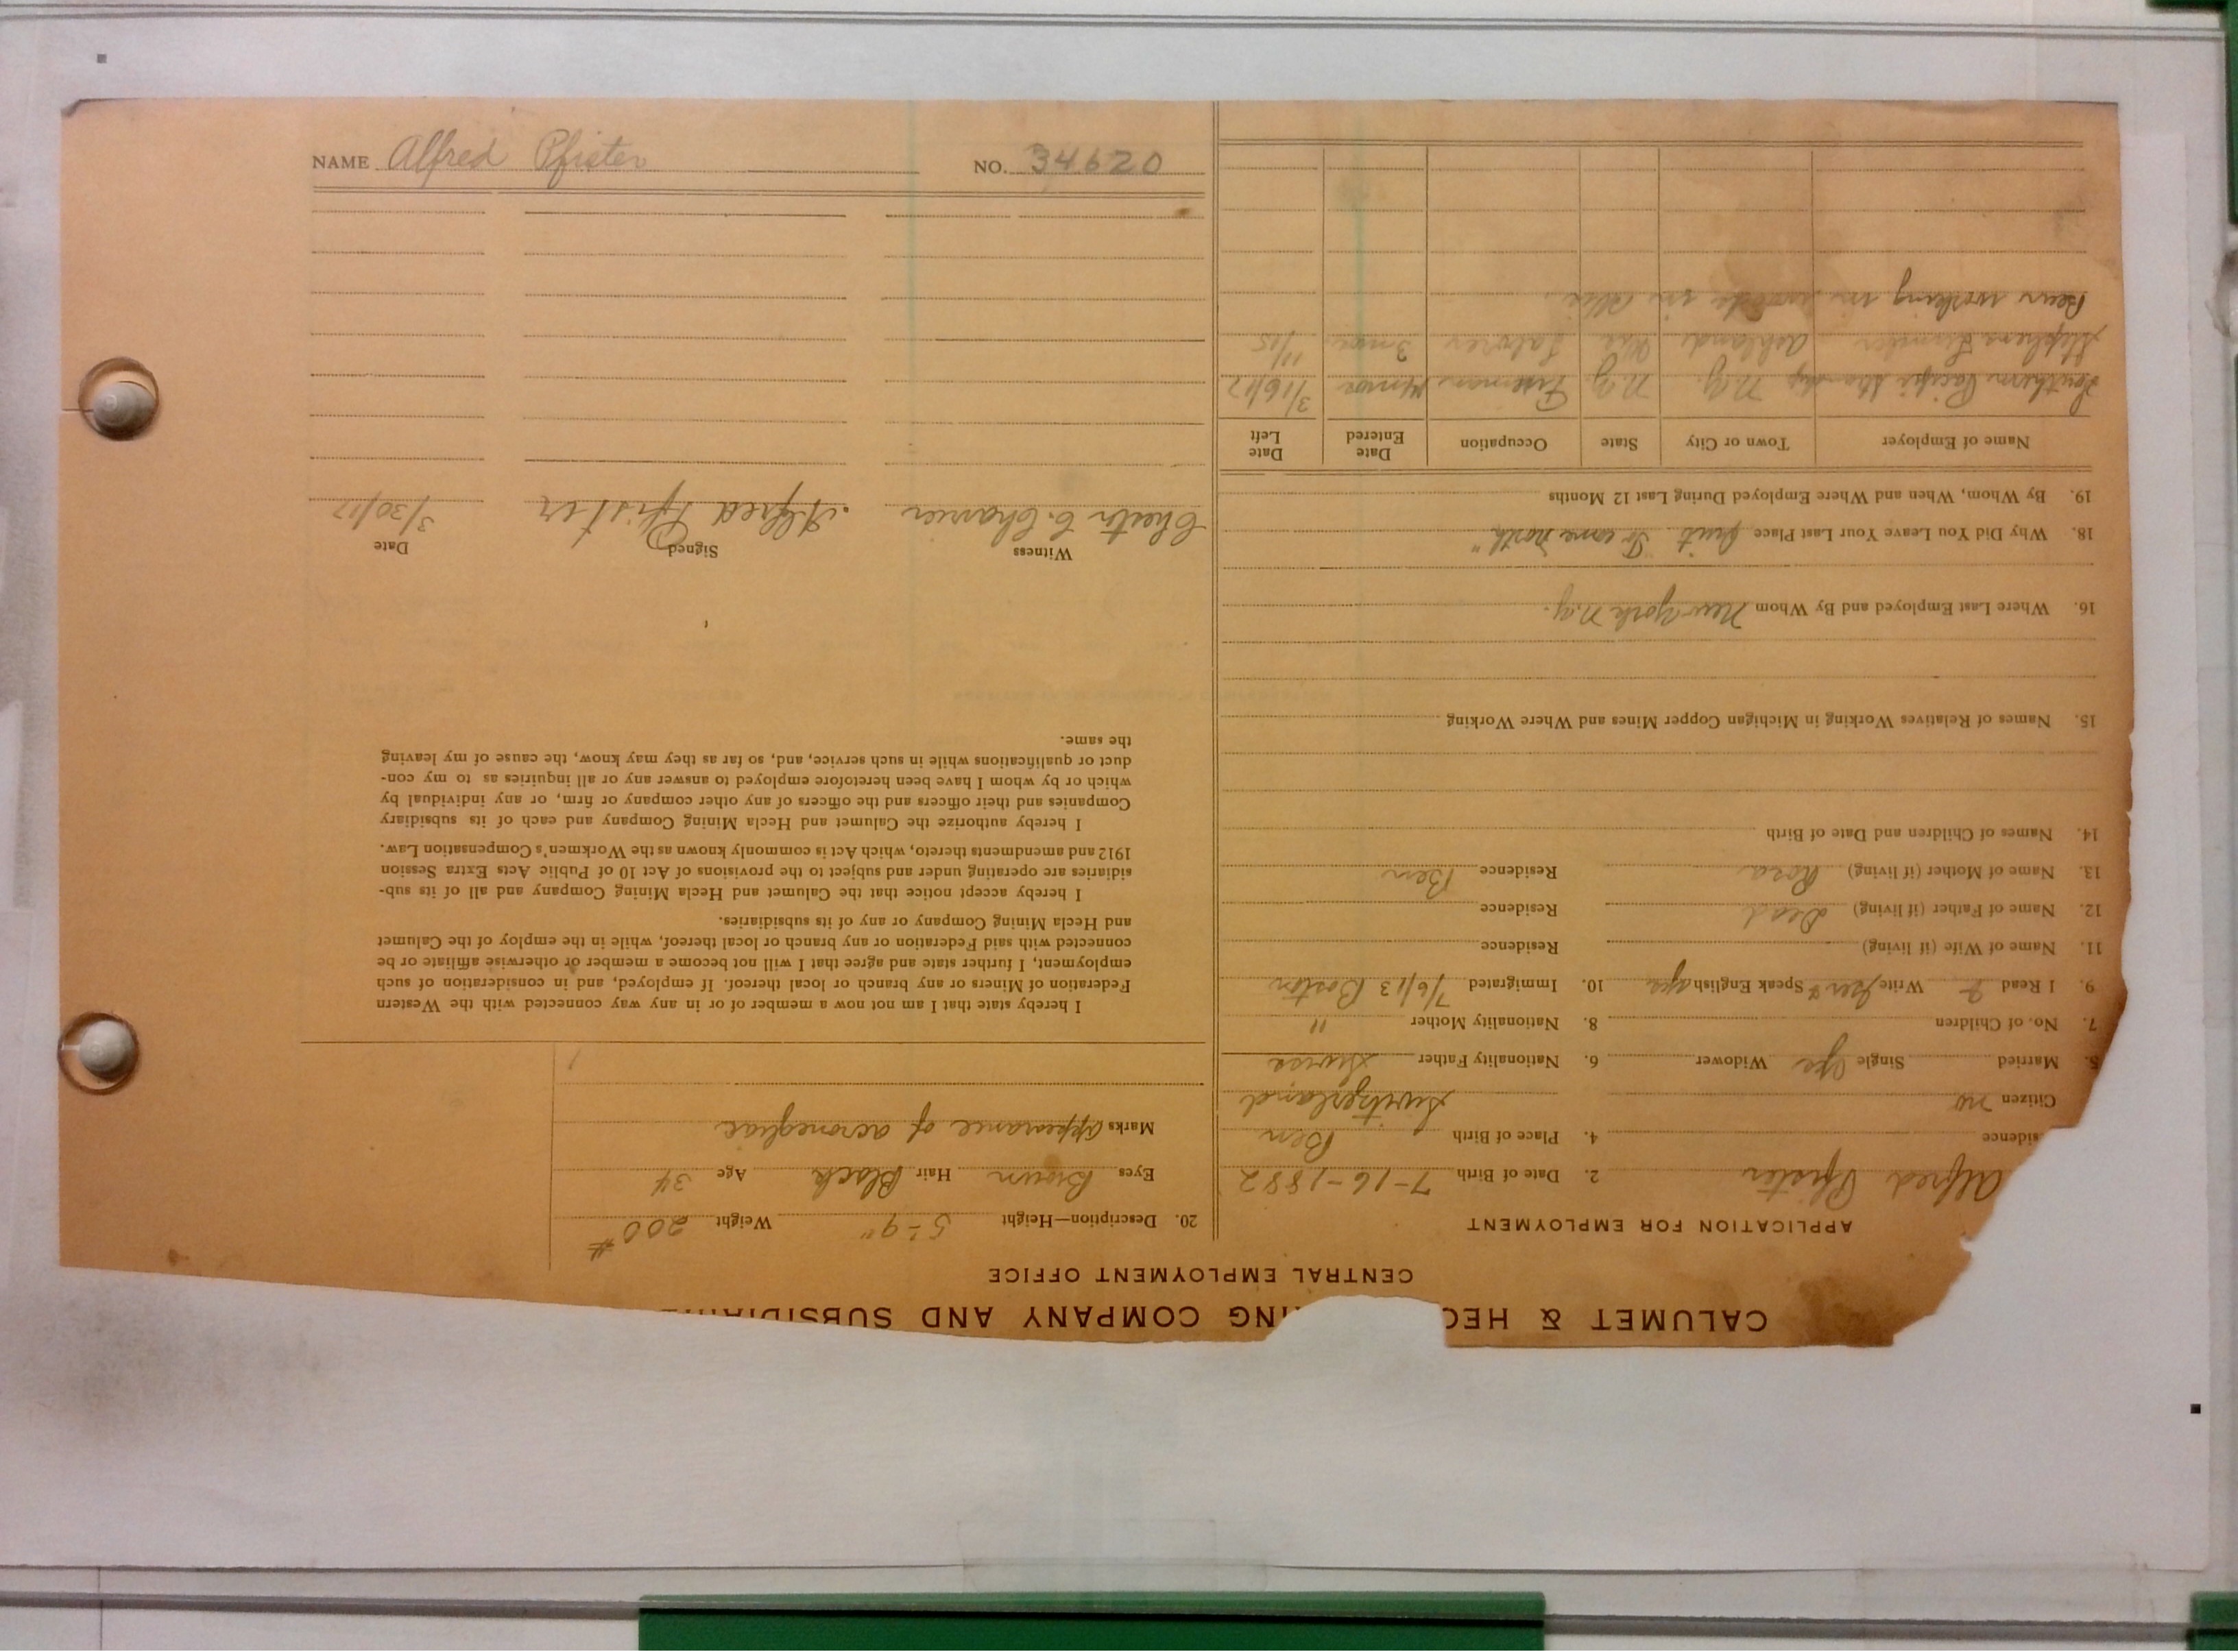 CALUMET & HEC ING COMPANY AND SUBSIDIARIE
CENTRAL EMPLOYMENT OFFICE
APPLICATION FOR EMPLOYMENT
Alfred Pfister 2. Date of Birth 7-16-1882
sidence 4. Place of Birth Bern
Citizen no Switzerland
5. Married Single Yes Widower 6. Nationality Father Swiss
7. No. of Children 8. Nationality Mother "
9. I Read Write Speak English yes 10. Immigrated 7/6/13 Boston
11. Name of Wife (if living) Residence
12. Name of Father (if living) Dead Residence
13. Name of Mother (if living) Rosa Residence Bern
14. Names of Children and Date of Birth
15. Names of Relatives Working in Michigan Copper Mines and Where Working
16. Where Last Employed and By Whom New York N.Y.
18. Why Did You Leave Your Last Place Quit. "To come north"
19. By Whom, When and Where Employed During Last 12 Months
Name of Employer Town or City State Occupation Date Entered Date Left
Southern Pacific Steamship N.Y. N.Y. Fireman 4 mos 3/16/17
Stephens Lumber Ashland Wis Laborer 3 mos 11/15
Been working in woods in Wis.
20. Description—Height 5-9" Weight 200 #
Eyes Brown Hair Black Age 34
Marks Appearance of acromegliac
I hereby state that I am not now a member of or in any way connected with the Western
Federation of Miners or any branch or local thereof. If employed, and in consideration of such
employment, I further state and agree that I will not become a member or otherwise affiliate or be
connected with said Federation or any branch or local thereof, while in the employ of the Calumet
and Hecla Mining Company or any of its subsidiaries.
I hereby accept notice that the Calumet and Hecla Mining Company and all of its sub-
sidiaries are operating under and subject to the provisions of Act 10 of Public Acts Extra Session
1912 and amendments thereto, which Act is commonly known as the Workmen's Compensation Law.
I hereby authorize the Calumet and Hecla Mining Company and each of its subsidiary
Companies and their officers and the officers of any other company or firm, or any individual by
which or by whom I have been heretofore employed to answer any or all inquiries as to my con-
duct or qualifications while in such service, and, so far as they may know, the cause of my leaving
the same.
Witness Signed Date
Chester E. Alfred Pfister 3/30/17
NAME Alfred Pfister NO. 34620